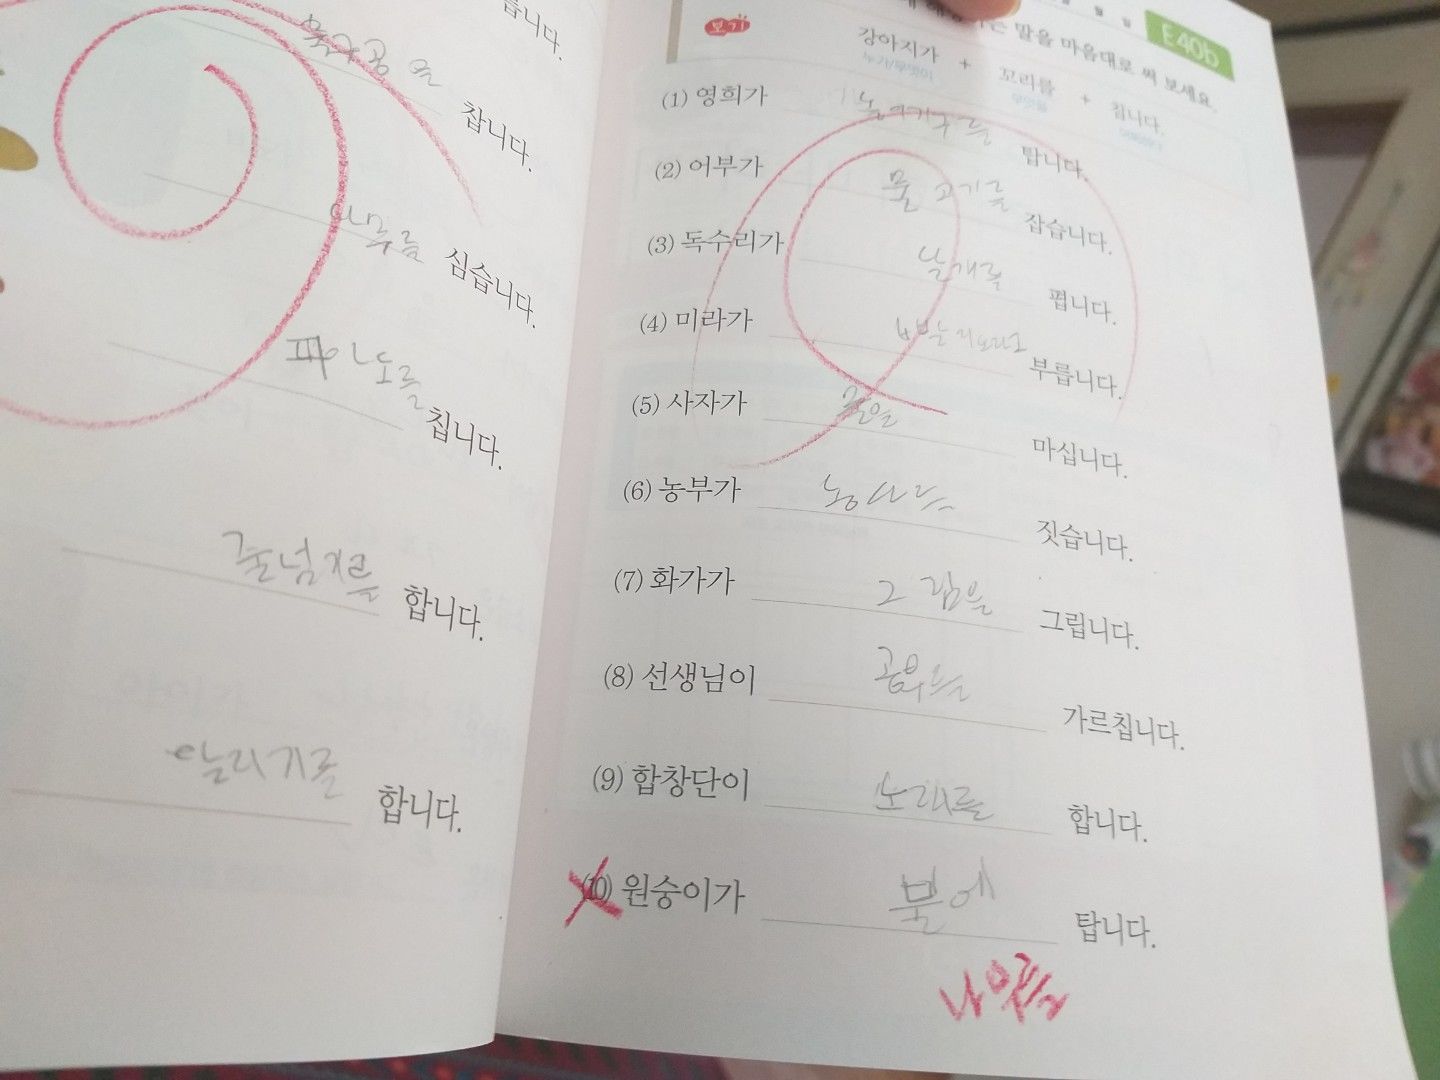 습니다.
찹니다.
심습니다.
피아노를 칩니다.
줄넘기를 합니다.
달리기를 합니다.
E40b
는 말을 마음대로 써 보세요.
보기
강아지가 + 꼬리를 + 칩니다.
누가/무엇이 무엇을
(1) 영희가 놀이기구를 탑니다.
(2) 어부가 물고기를 잡습니다.
(3) 독수리가 날개를 폅니다.
(4) 미라가 부릅니다.
(5) 사자가 물을 마십니다.
(6) 농부가 농사를 짓습니다.
(7) 화가가 그림을 그립니다.
(8) 선생님이 공부를 가르칩니다.
(9) 합창단이 노래를 합니다.
(10) 원숭이가 불에 탑니다.
나무를